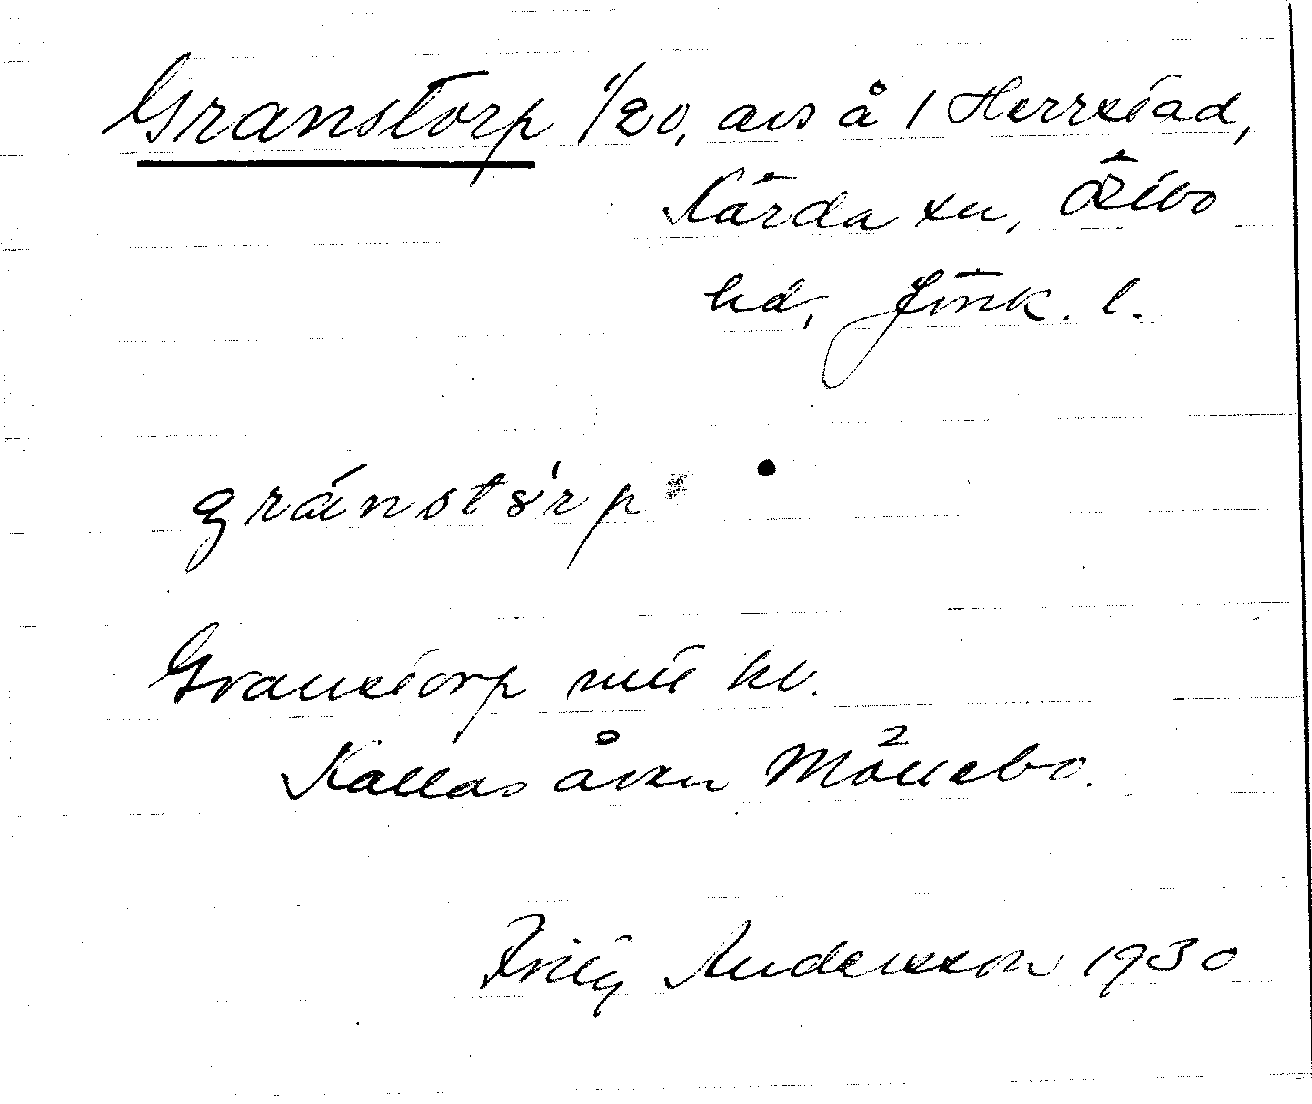 Granstorp 1/20, avs å 1 Herrestad,
Kärda sn, Östbo
hd, Jönk. l.
gránstórp
Granstorp mtl kl.
Kallas även Möllebo.
Andersson 1930